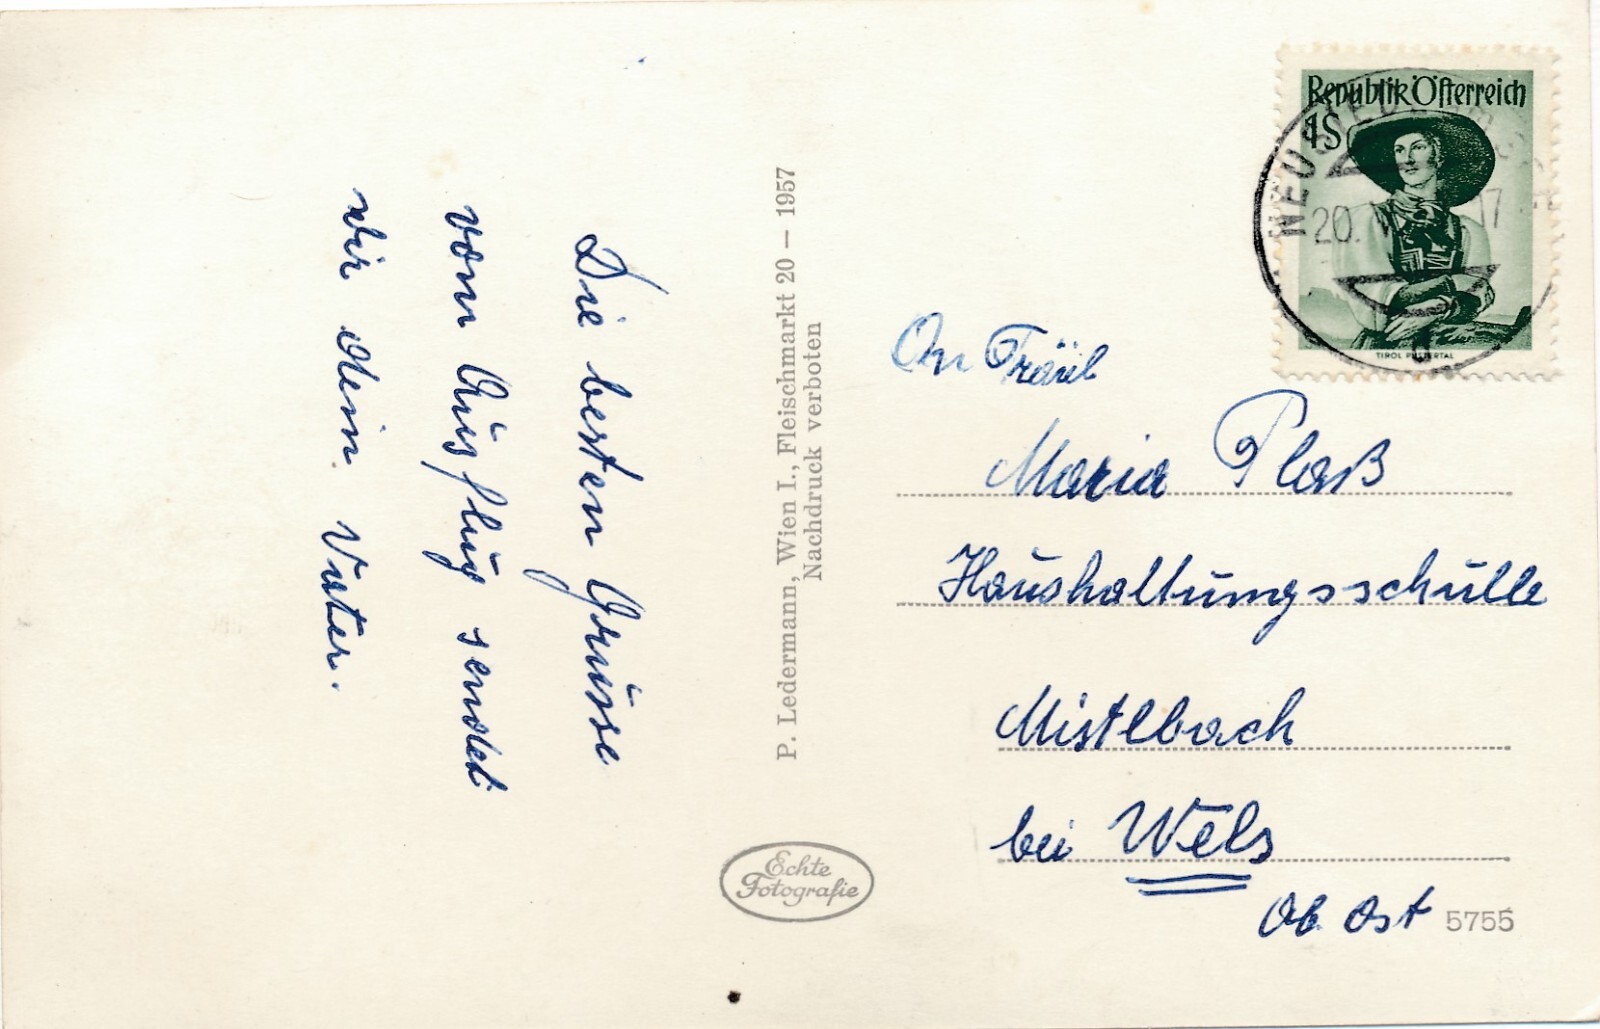 Die besten Grüsse
vom Ausflug sendet
dir dein Vater.
P. Ledermann, Wien I., Fleischmarkt 20 — 1957
Nachdruck verboten
Echte
Fotografie
Republik Österreich
1S
TIROL PUSTERTAL
20. V
17
An Fräul
Maria Plaß
Haushaltungsschulle
Mistlbach
bei Wels
Ob. Öst
5755